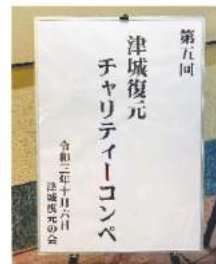 第五回
津城復元
チャリティーコンペ
令和三年十月六日
津城復元の会